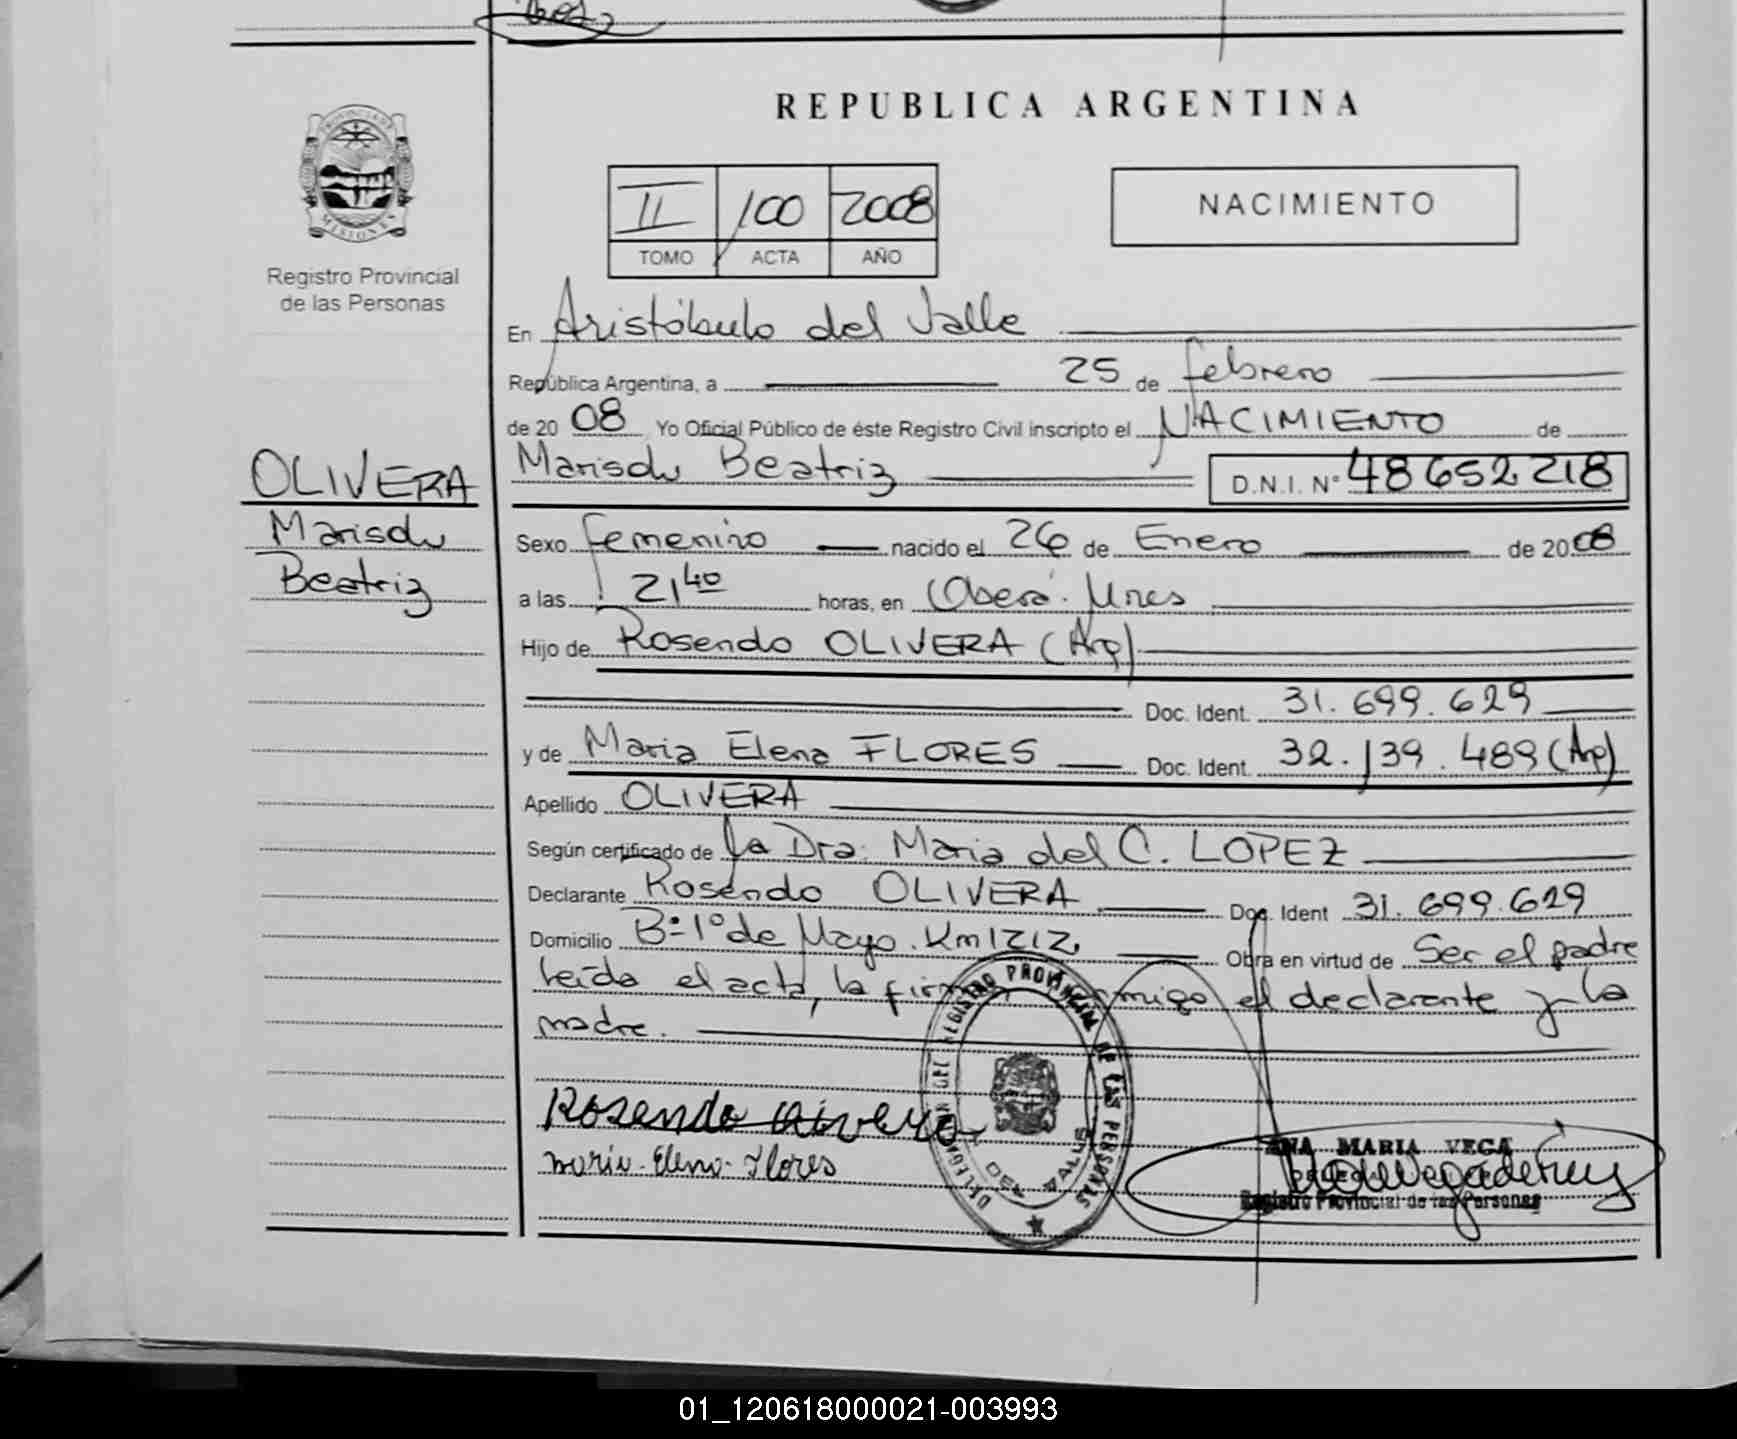 REPUBLICA ARGENTINA
II /100 2008
TOMO ACTA AÑO
NACIMIENTO
PROVINCIA DE MISIONES
Registro Provincial
de las Personas
OLIVERA
Marisol
Beatriz
En Aristóbulo del Valle
República Argentina, a 25 de febrero
de 2008 Yo Oficial Público de éste Registro Civil inscripto el NACIMIENTO de
Marisol Beatriz D.N.I. Nº 48652218
Sexo femenino nacido el 26 de Enero de 2008
a las 21 40 horas, en Oberá. Mnes
Hijo de Rosendo OLIVERA (Arg)
Doc. Ident. 31.699.629
y de Maria Elena FLORES Doc. Ident. 32.139.489 (Arg)
Apellido OLIVERA
Según certificado de la Dra. Maria del C. LOPEZ
Declarante Rosendo OLIVERA Doc. Ident 31.699.629
Domicilio Bº 1º de Mayo. Km 1212, Obra en virtud de Ser el padre
leída el acta, la firman conmigo el declarante y la
madre.
Rosendo Olivera
maria Elena Flores
DELEGACION DEL REGISTRO PROVINCIAL DE LAS PERSONAS
DEL VALLE
ANA MARIA VEGA
Registro Provincial de las Personas
01_120618000021-003993